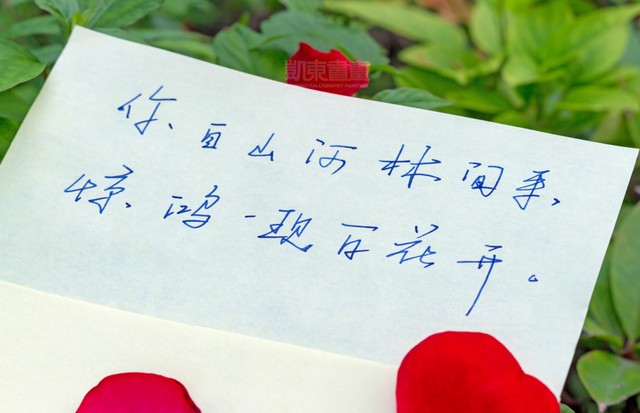 凯東書畫
你自山河林间来，
惊鸿一现百花开。